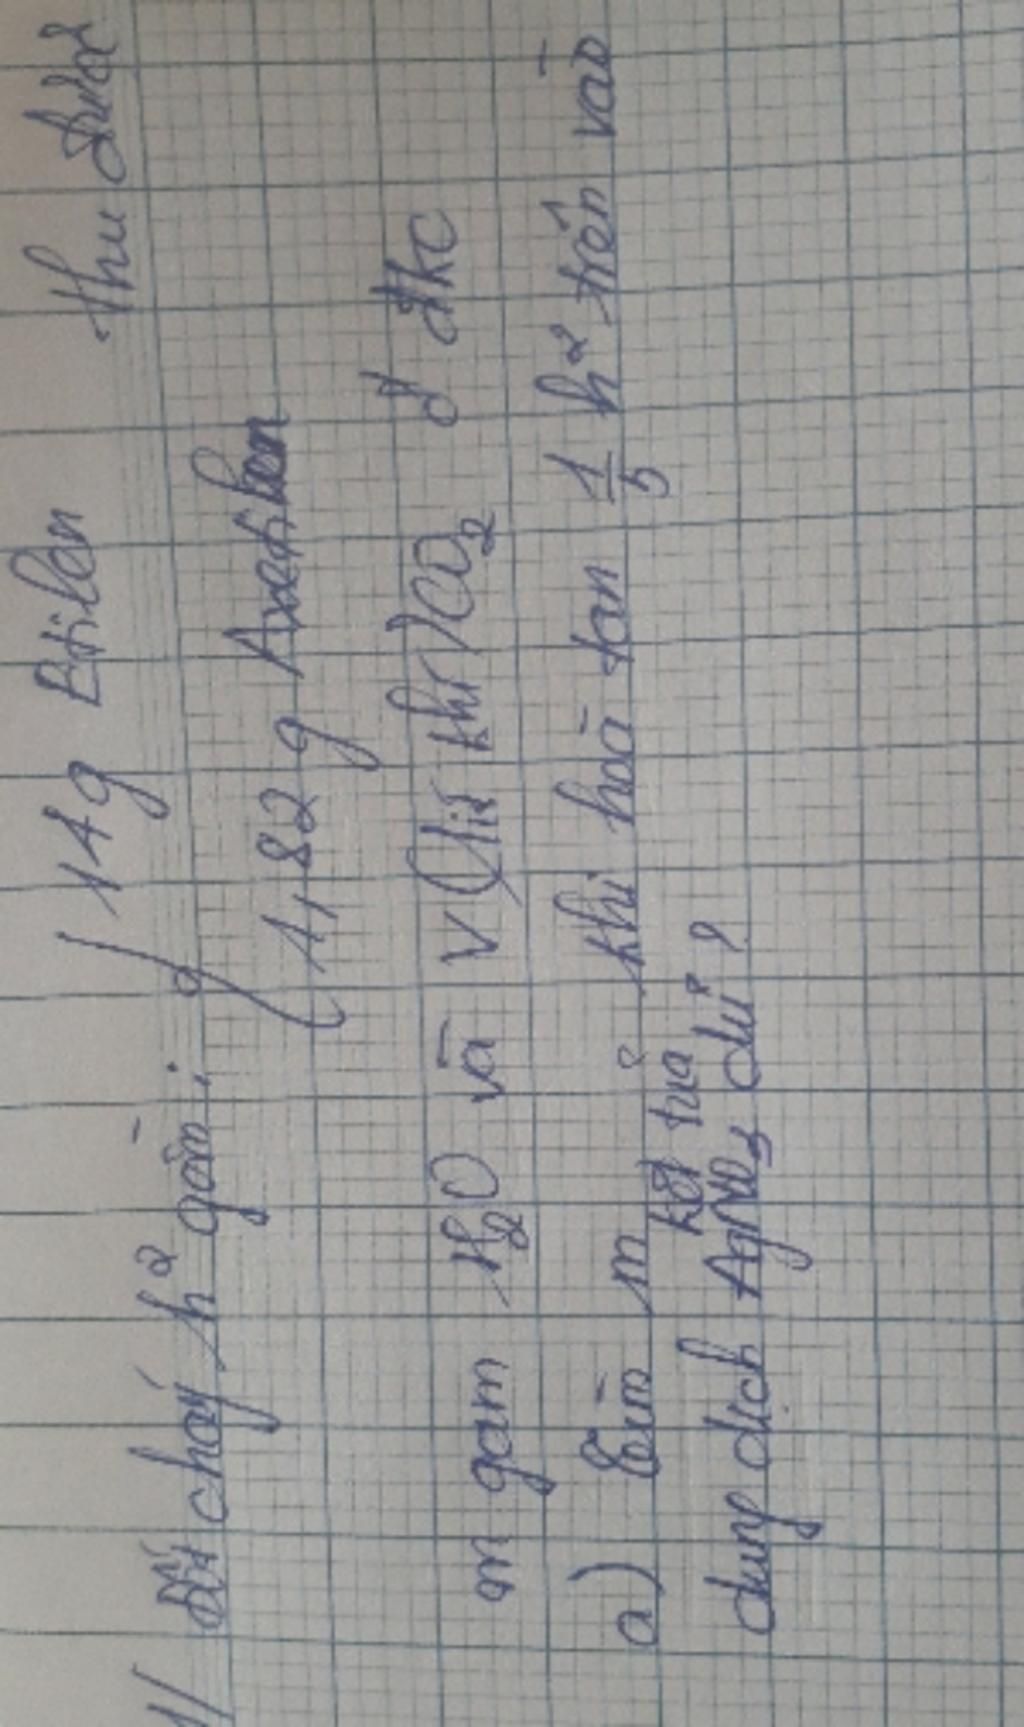 1/ Đốt cháy h² gồm: 14g Etilen thu được
1,82 g Axetilen
m gam H₂O và V (lít khí) CO₂ ở đkc
a) Tìm m kết tủa khi hoà tan 1/5 h² trên vào
dung dịch AgNO₃ dư ?